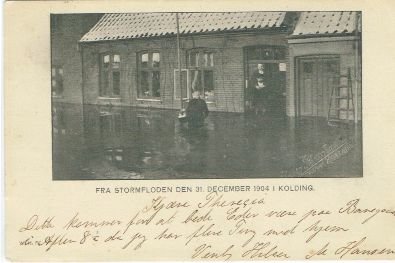 FRA STORMFLODEN DEN 31. DECEMBER 1904 I KOLDING.
Kjære
Dette kommer for at bede Eder være paa
Aften 8½ da jeg har flere Ting med hjem
Venlig Hilsen Hansen